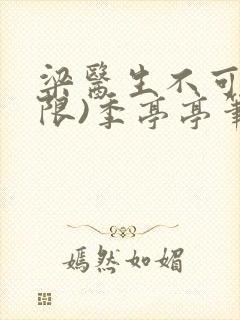 梁醫生不可
限)季亭亭筆
嫣然如媚